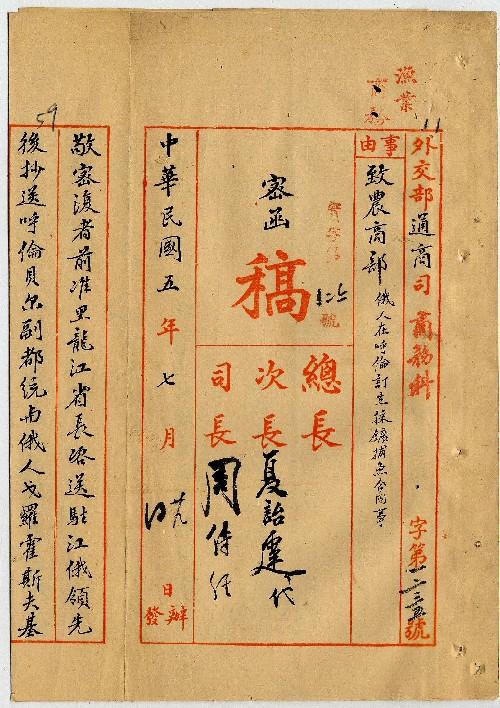 漁業
商務
外交部通商司商務科
字第一二三五號
事由
致農商部 俄人在呼倫訂立採鑛捕魚合同事
密函
稿
號
總長
次長 夏詒霆代
司長 周傳經
中華民國五年七月
日辦發
敬密復者前准黑龍江省長咨送駐江俄領先
後抄送呼倫貝爾副都統與俄人戈羅霍斯夫基
59
11